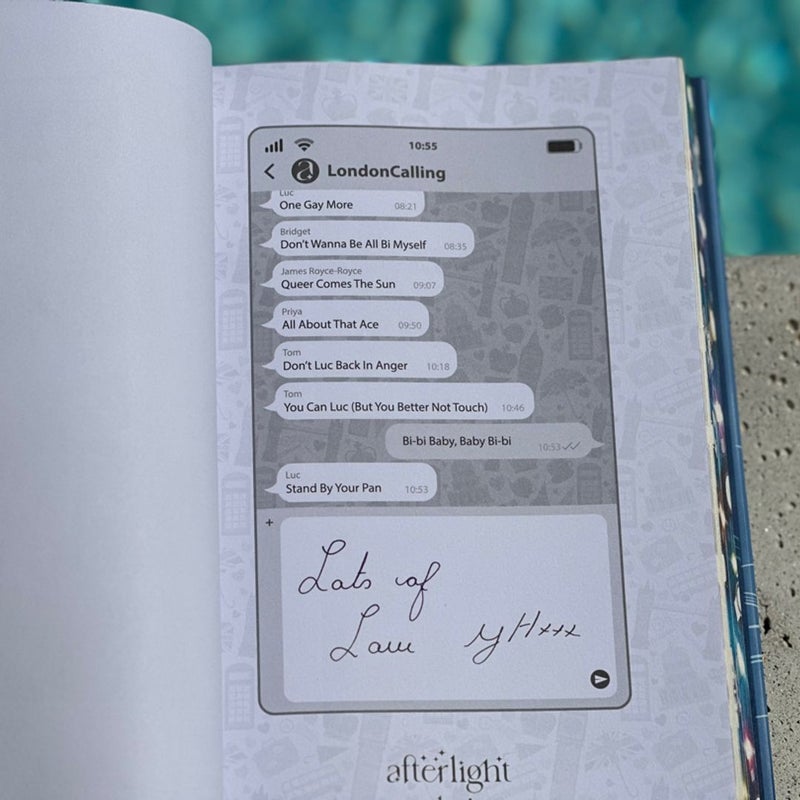 10:55
LondonCalling
Luc
One Gay More 08:21
Bridget
Don't Wanna Be All Bi Myself 08:35
James Royce-Royce
Queer Comes The Sun 09:07
Priya
All About That Ace 09:50
Tom
Don't Luc Back In Anger 10:18
Tom
You Can Luc (But You Better Not Touch) 10:46
Bi-bi Baby, Baby Bi-bi 10:53
Luc
Stand By Your Pan 10:53
+
Lots of
afterlight